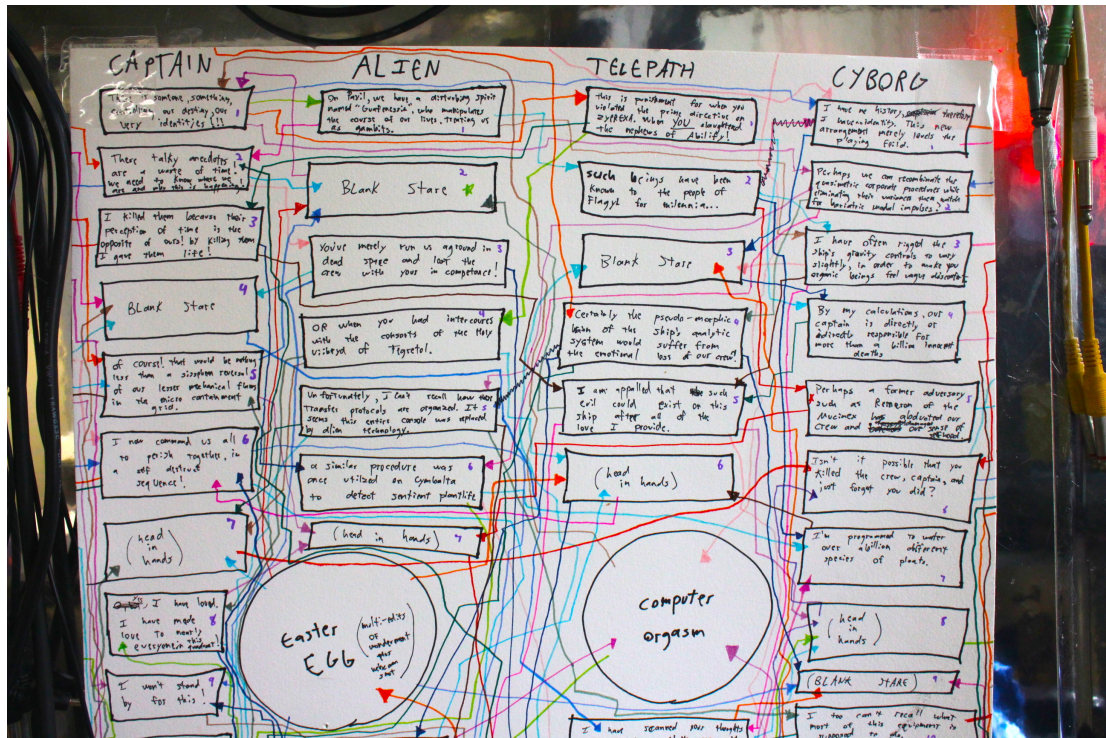 CAPTAIN
ALIEN
TELEPATH
CYBORG
This is someone, something,
our destiny, our
very identities!!! 1
There talky anecdotes 2
are a waste of time!
we need to know where we
are and why this is happening!
I killed them because their 3
perception of time is the
opposite of ours! by killing them
I gave them life!
4
Blank Stare
of course! that would be nothing
less than a sisyphean reversal 5
of our lesser mechanical flaws
in the micro containment
grid.
I now command us all 6
to perish together, in
a self destruct
sequence!
7
(head
in
hands)
Yes, I have loved.
I have made 8
love to nearly
everyone in this quadrant!
I won't stand 9
by for this!
On Paxil, we have a disturbing spirit
named "Guafenesin", who manipulates
the course of our lives, treating us
as gambits. 1
2
Blank Stare
You've merely run us aground in 3
dead space and lost the
crew with your incompetence!
4
OR when you had intercourse
with the consorts of the Holy
of Tigretol.
Unfortunately, I can't recall how these
transfer protocols are organized. It 5
seems this entire console was replaced
by alien technology.
a similar procedure was 6
once utilized on Cymbalta
to detect sentient plantlife
(head in hands) 7
Easter
EGG
(multi-edits
or
wonderment
plus
webcam
shot)
This is punishment for when you
violated the prime directive on
Zyprexa. When you slaughtered 1
the nephews of Abilify!
such beings have been 2
known to the people of
Flagyl for milennia...
3
Blank Stare
Certainly the pseudo-morphic 4
of the ship's analytic
system would suffer from
the emotional loss of our crew!
I am appalled that such
evil could exist on this 5
ship after all of the
love I provide.
6
(head
in hands)
Computer
orgasm
I have scanned your thoughts
I have no history, therefore
I have no identity. This new
arrangement merely levels the
playing field. 1
Perhaps we can recombinate the
quasimetric corporate procedures while
eliminating their weakness then switch
for bariatric modal impulses. 2
I have often rigged the 3
ship's gravity controls to vary
slightly, in order to make you
organic beings feel vague discomfort
By my calculations, our 4
captain is directly or
indirectly responsible for
more than a billion innocent
deaths
Perhaps a former adversary
such as Remeron of the 5
Mucinex has abducted our
crew and our sense of
self hood.
Isn't it possible that you
killed the crew, captain, and
just forgot you did?
6
I'm programmed to water
over a billion different
species of plants.
7
8
(head
in
hands)
(BLANK STARE) 9
I too can't recall what
most of this equipment is
supposed to do.